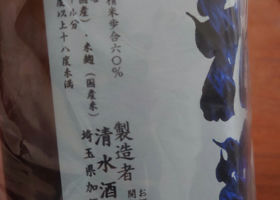 精米歩合六〇%
国産)・米麹(国産米)
ル分
度以上十八度未満
製造者
清水酒
埼玉県加
お
開